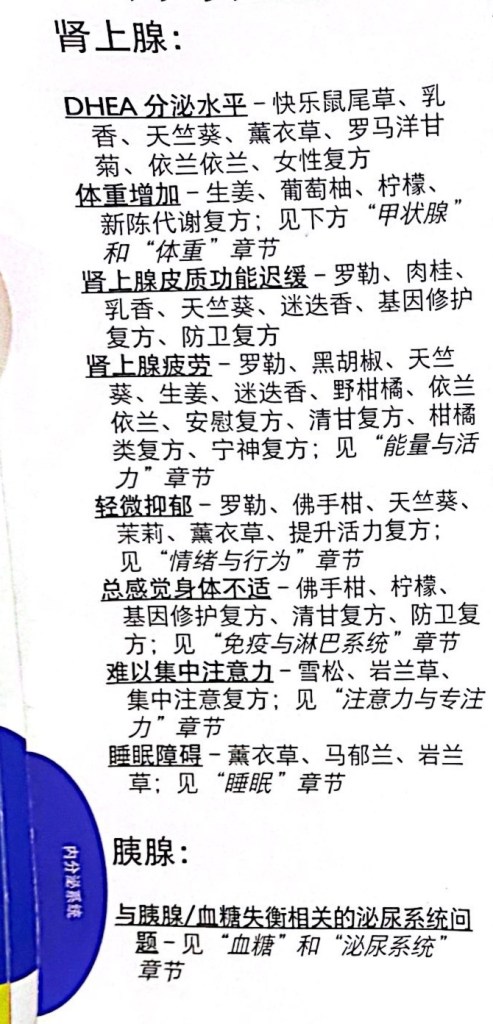 肾上腺：
DHEA 分泌水平 – 快乐鼠尾草、乳
香、天竺葵、薰衣草、罗马洋甘
菊、依兰依兰、女性复方
体重增加 – 生姜、葡萄柚、柠檬、
新陈代谢复方；见下方 “甲状腺”
和 “体重” 章节
肾上腺皮质功能迟缓 – 罗勒、肉桂、
乳香、天竺葵、迷迭香、基因修护
复方、防卫复方
肾上腺疲劳 – 罗勒、黑胡椒、天竺
葵、生姜、迷迭香、野柑橘、依兰
依兰、安慰复方、清甘复方、柑橘
类复方、宁神复方；见 “能量与活
力” 章节
轻微抑郁 – 罗勒、佛手柑、天竺葵、
茉莉、薰衣草、提升活力复方；
见 “情绪与行为” 章节
总感觉身体不适 – 佛手柑、柠檬、
基因修护复方、清甘复方、防卫复
方；见 “免疫与淋巴系统” 章节
难以集中注意力 – 雪松、岩兰草、
集中注意复方；见 “注意力与专注
力” 章节
睡眠障碍 – 薰衣草、马郁兰、岩兰
草；见 “睡眠” 章节
胰腺：
与胰腺/血糖失衡相关的泌尿系统问
题 – 见 “血糖” 和 “泌尿系统”
章节
内分泌系统